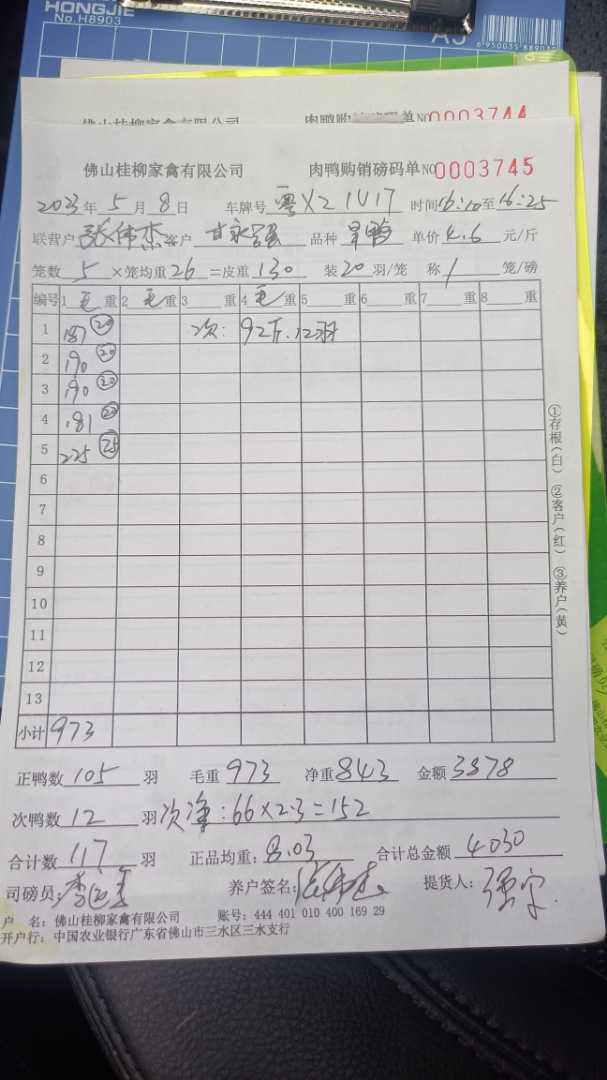 HONGJIE
No.H8903
A5
6950035889030
佛山桂柳家禽有限公司 肉鸭购销磅码单 NO 0003744
佛山桂柳家禽有限公司 肉鸭购销磅码单 NO 0003745
2023年5月8日 车牌号 粤X21V17 时间16:10至16:25
联营户 张伟杰 客户 甘永强 品种 旱鸭 单价 4.6 元/斤
笼数 5 ×笼均重 26 =皮重 130 装 20 羽/笼 称 1 笼/磅
编号 1 毛 重 2 毛 重 3 重 4 毛 重 5 重 6 重 7 重 8 重
1 187 20 次: 92斤.12羽
2 190 20
3 190 20
4 181 20
5 225 25
6
7
8
9
10
11
12
13
小计 973
①存根(白) ②客户(红) ③养户(黄)
正鸭数 105 羽 毛重 973 净重 843 金额 3878
次鸭数 12 羽 次净:66×2.3=152
合计数 117 羽 正品均重: 8.03 合计总金额 4030
司磅员: 养户签名: 张伟杰 提货人:
户 名: 佛山桂柳家禽有限公司 账号: 444 401 010 400 169 29
开户行: 中国农业银行广东省佛山市三水区三水支行